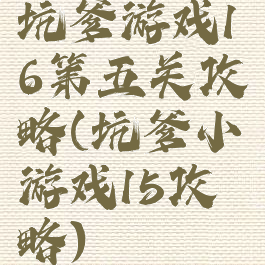 坑爹游戏1
6第五关攻
略(坑爹小
游戏15攻
略)